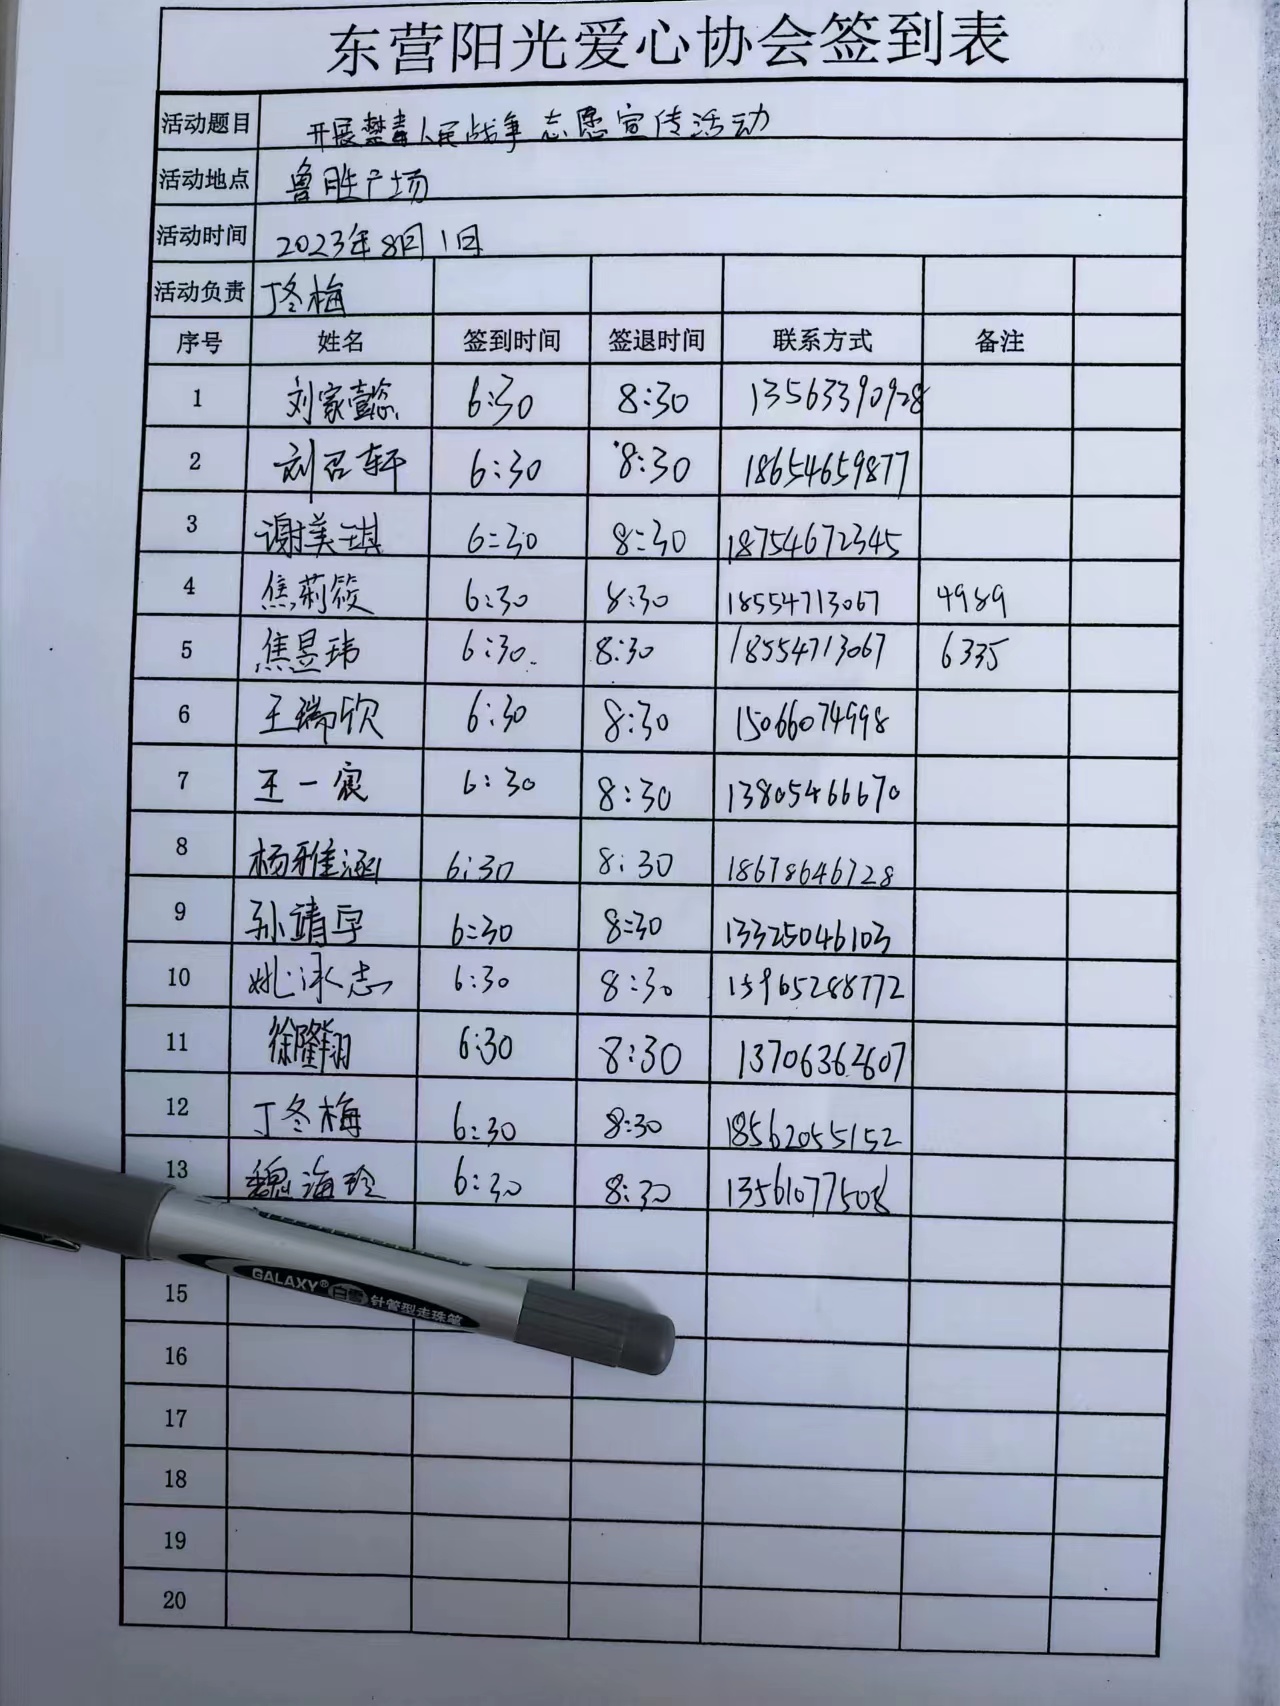 东营阳光爱心协会签到表
活动题目 开展禁毒人民战争志愿宣传活动
活动地点 鲁胜广场
活动时间 2023年8月1日
活动负责 丁冬梅
序号 姓名 签到时间 签退时间 联系方式 备注
1 刘家懿 6:30 8:30 13563390928
2 刘召轩 6:30 8:30 18654659877
3 谢美琪 6:30 8:30 18754672345
4 焦莉筱 6:30 8:30 18554713067 4989
5 焦昱玮 6:30 8:30 18554713067 6335
6 王瑞欣 6:30 8:30 15066074998
7 王一宸 6:30 8:30 13805466670
8 杨雅涵 6:30 8:30 18678646728
9 孙靖宇 6:30 8:30 13325046103
10 姚泳志 6:30 8:30 15965288772
11 徐隆翔 6:30 8:30 13706362607
12 丁冬梅 6:30 8:30 18562055152
13 魏海玲 6:30 8:30 13561077508
GALAXY® 白雪 针管型走珠笔
15
16
17
18
19
20